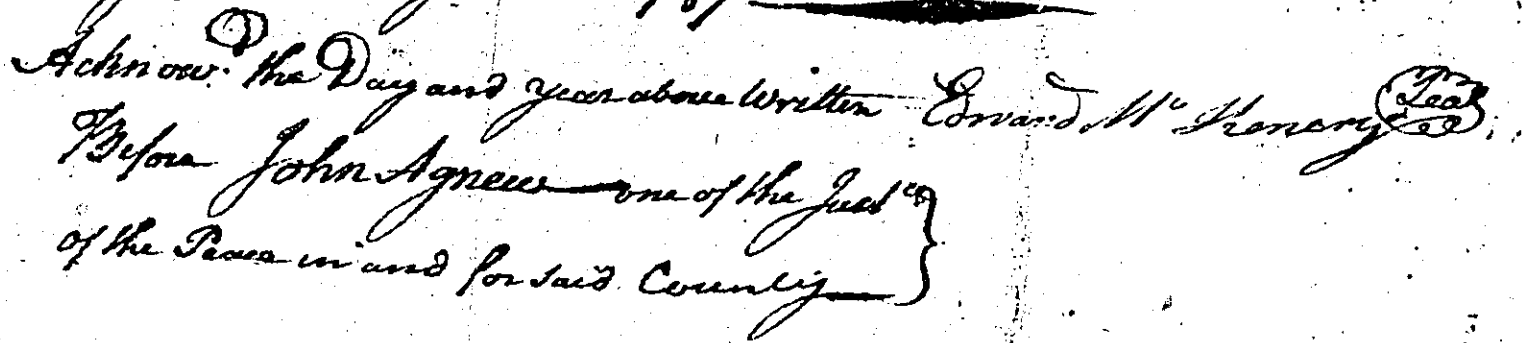 Acknow.d the Day and year above Written Edward Mc Henery Seal
Before John Agnew one of the Justces
of the Peace in and for said County